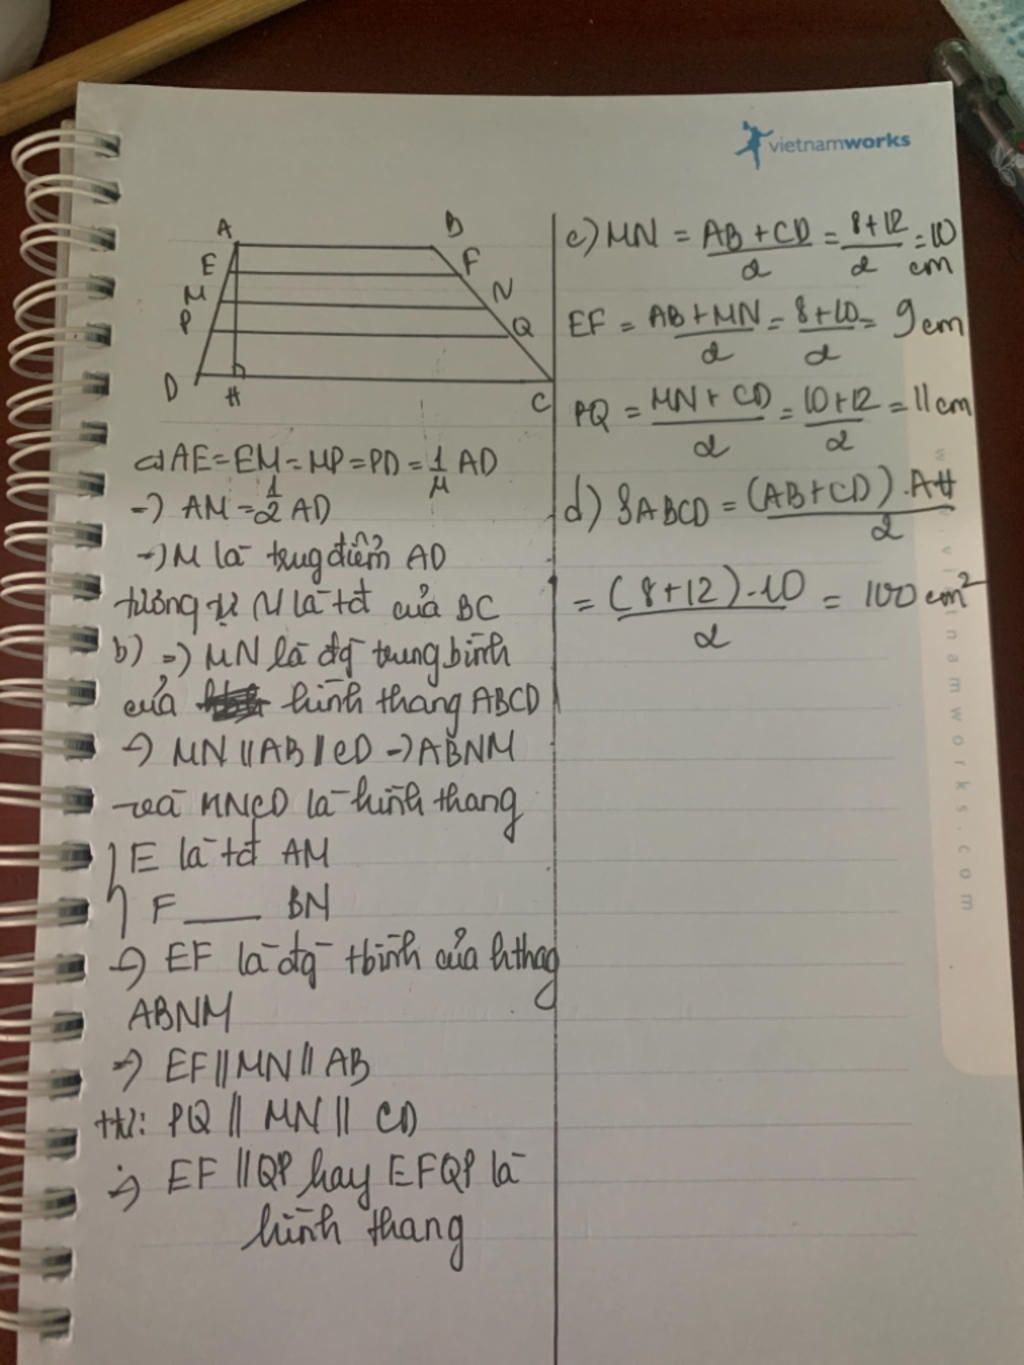 vietnamworks
A B
E F
M N
P Q
D H C
a) AE = EM = MP = PD = 1/4 AD
-) AM = 1/2 AD
-) M là trung điểm AD
tương tự N là tđ của BC
b) =) MN là đg trung bình
của hình thang ABCD
=) MN // AB // CD -) ABNM
và MNCD là hình thang
E là tđ AM
F ___ BN
=) EF là đg tbình của hthag
ABNM
=) EF // MN // AB
ttự: PQ // MN // CD
=) EF // QP hay EFQP là
hình thang
c) MN = (AB + CD)/2 = (8 + 12)/2 = 10 cm
EF = (AB + MN)/2 = (8 + 10)/2 = 9 cm
PQ = (MN + CD)/2 = (10 + 12)/2 = 11 cm
d) SABCD = ((AB + CD) . AH)/2
= ((8 + 12) . 10)/2 = 100 cm²